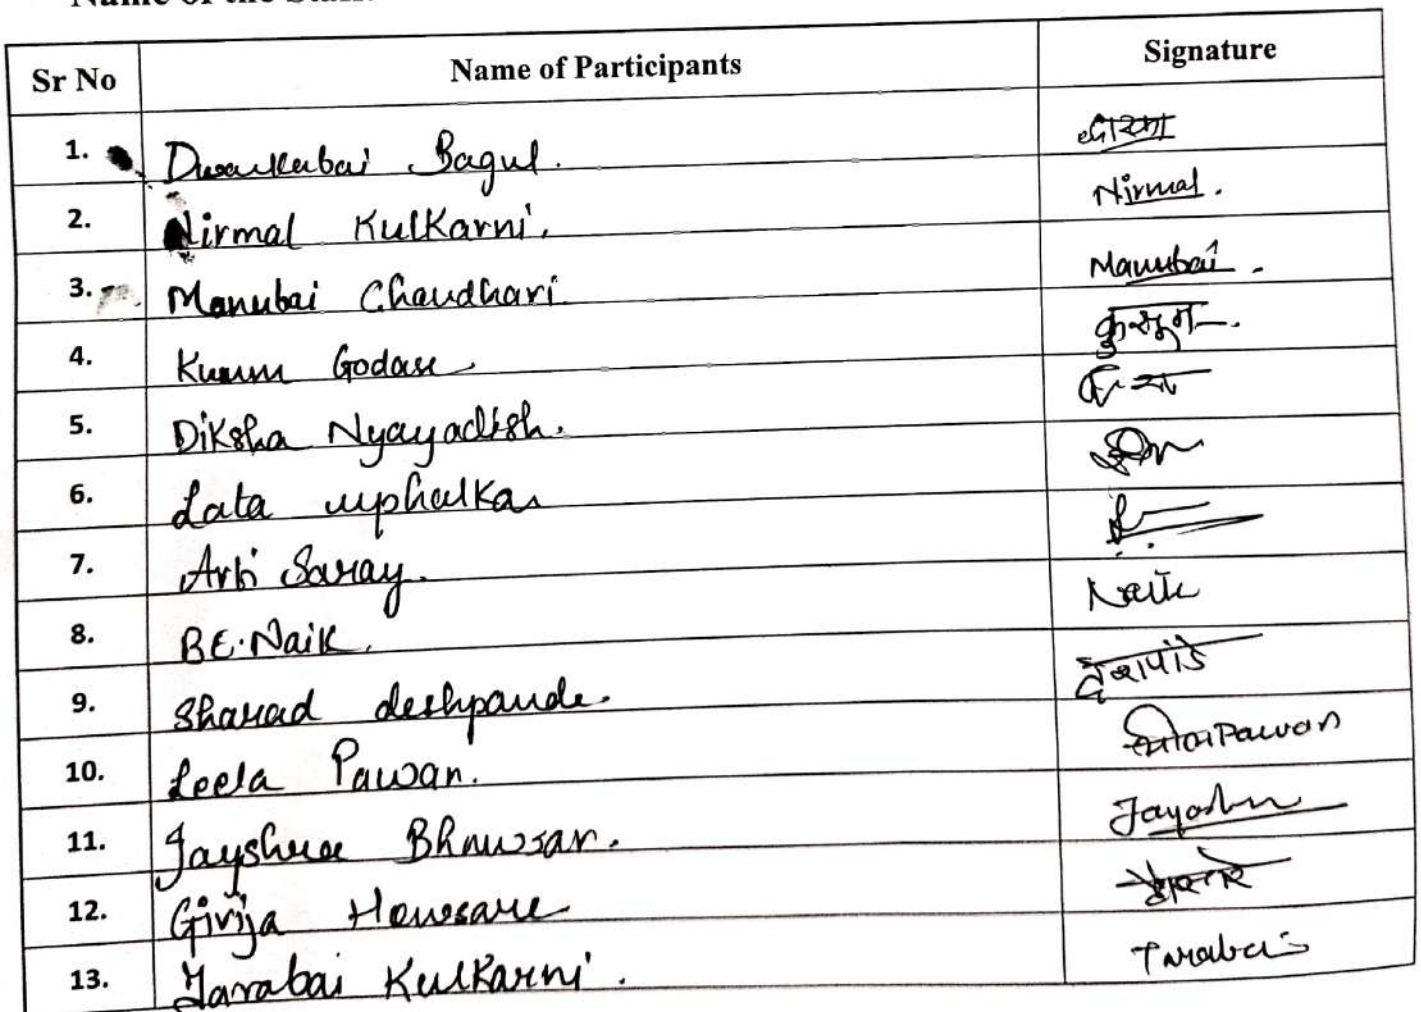 Sr No Name of Participants Signature
1. Dwarkabai Bagul.
2. Nirmal Kulkarni. Nirmal.
3. Manubai Chaudhari. Manubai.
4. Kusum Godase कुसुम
5. Diksha Nyayadish.
6. Lata
7. Saray.
8. B.E. Naik. Naik
9. Sharad deshpande. देशपांडे
10. Leela Pawar. Pawar
11. Jayshree Bhawsar. Jayashree
12. Girija
13. Tarabai Kulkarni. Tarabai